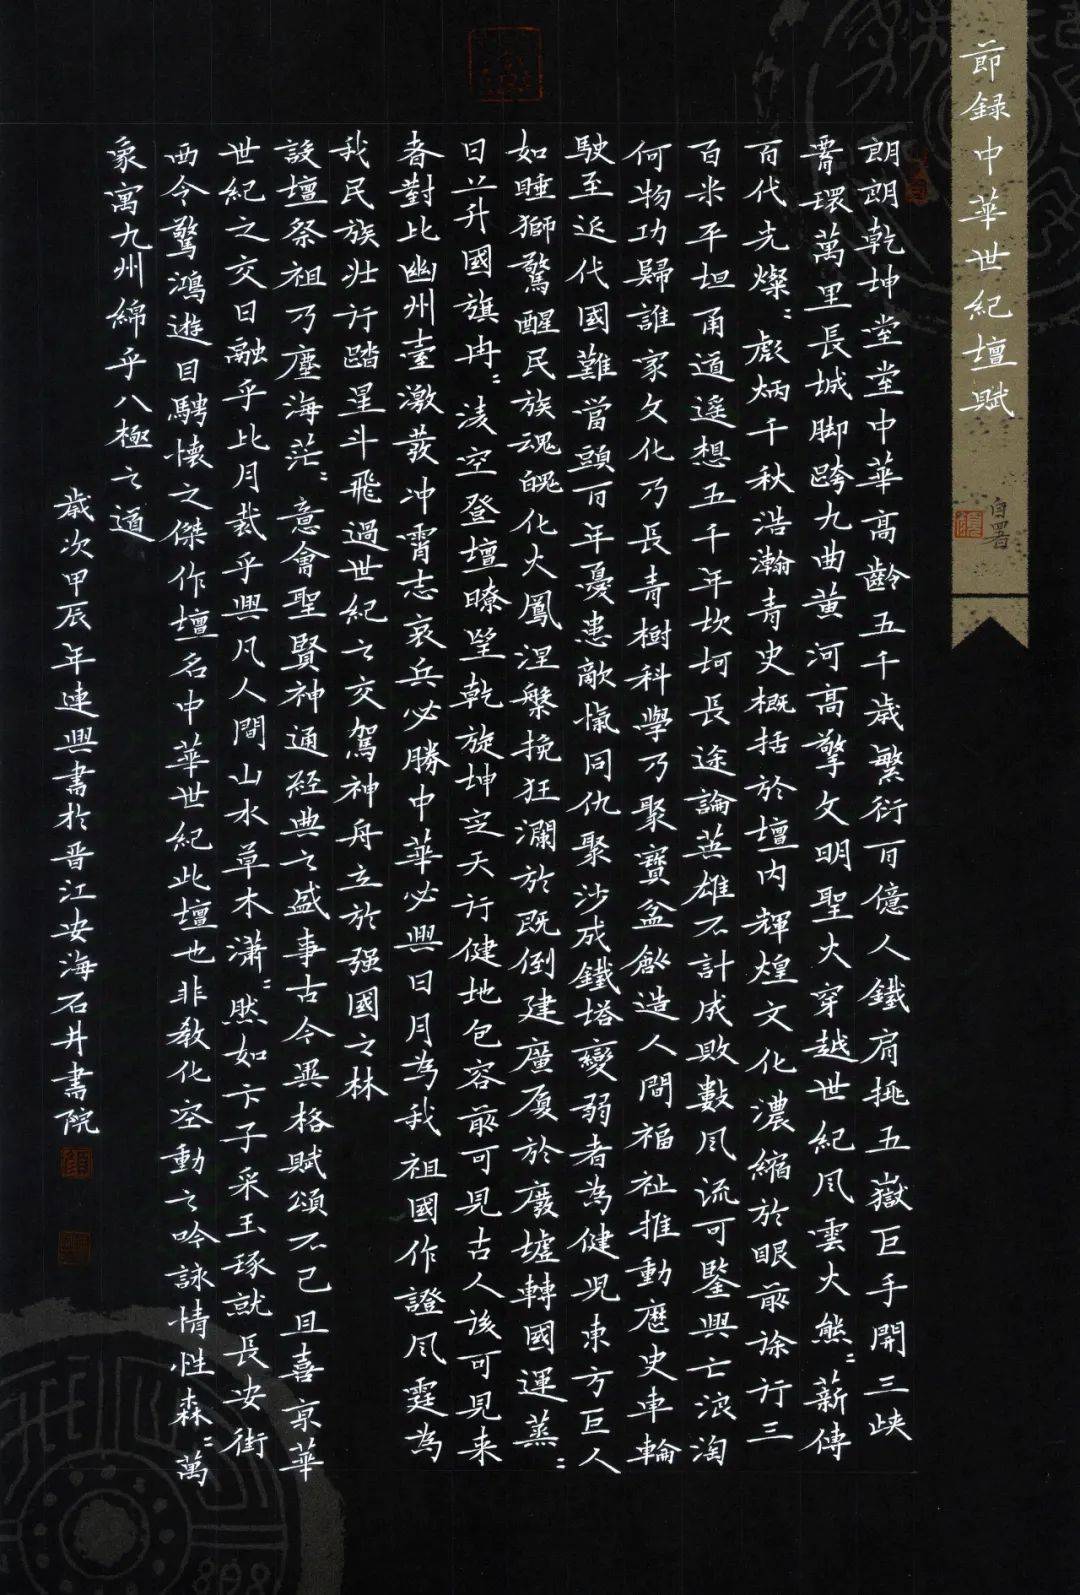 節録中華世紀壇賦
自署
朗朗乾坤堂堂中華高齡五千歲繁衍百億人鐵肩挑五嶽巨手開三峽
膂環萬里長城脚跨九曲黄河高擎文明聖火穿越世紀风雲火熊〻薪傳
百代光燦〻彪炳千秋浩瀚青史概括於壇内輝煌文化濃縮於眼前徐行三
百米平坦甬道遥想五千年坎坷長途論英雄不計成敗數风流可鑒興亡浪淘
何物功歸誰家文化乃長青樹科學乃聚寶盆創造人間福祉推動歷史車輪
駛至近代國難當頭百年憂患敵愾同仇聚沙成鐵塔變弱者為健児東方巨人
如睡獅驚醒民族魂魄化火鳳涅槃挽狂瀾於既倒建廣廈於廢墟轉國運蒸〻
日上升國旗冉〻淩空登壇瞭望乾旋坤定天行健地包容前可見古人後可見来
者對比幽州臺激發冲霄志哀兵必勝中華必興日月為我祖國作證风霆為
我民族壮行踏星斗飛過世紀之交駕神舟立於强國之林
設壇祭祖乃塵海茫〻意會聖賢神通經典之盛事古今異格賦頌不已且喜京華
世紀之交日融乎比月裁乎興凡人間山水草木瀟〻然如卞子采玉琢就長安街
西令驚鴻遊目騁懷之傑作壇名中華世紀此壇也非教化空動之吟詠情性森〻萬
象寓九州綿乎八極之道
歲次甲辰年連興書於晋江安海石井書院